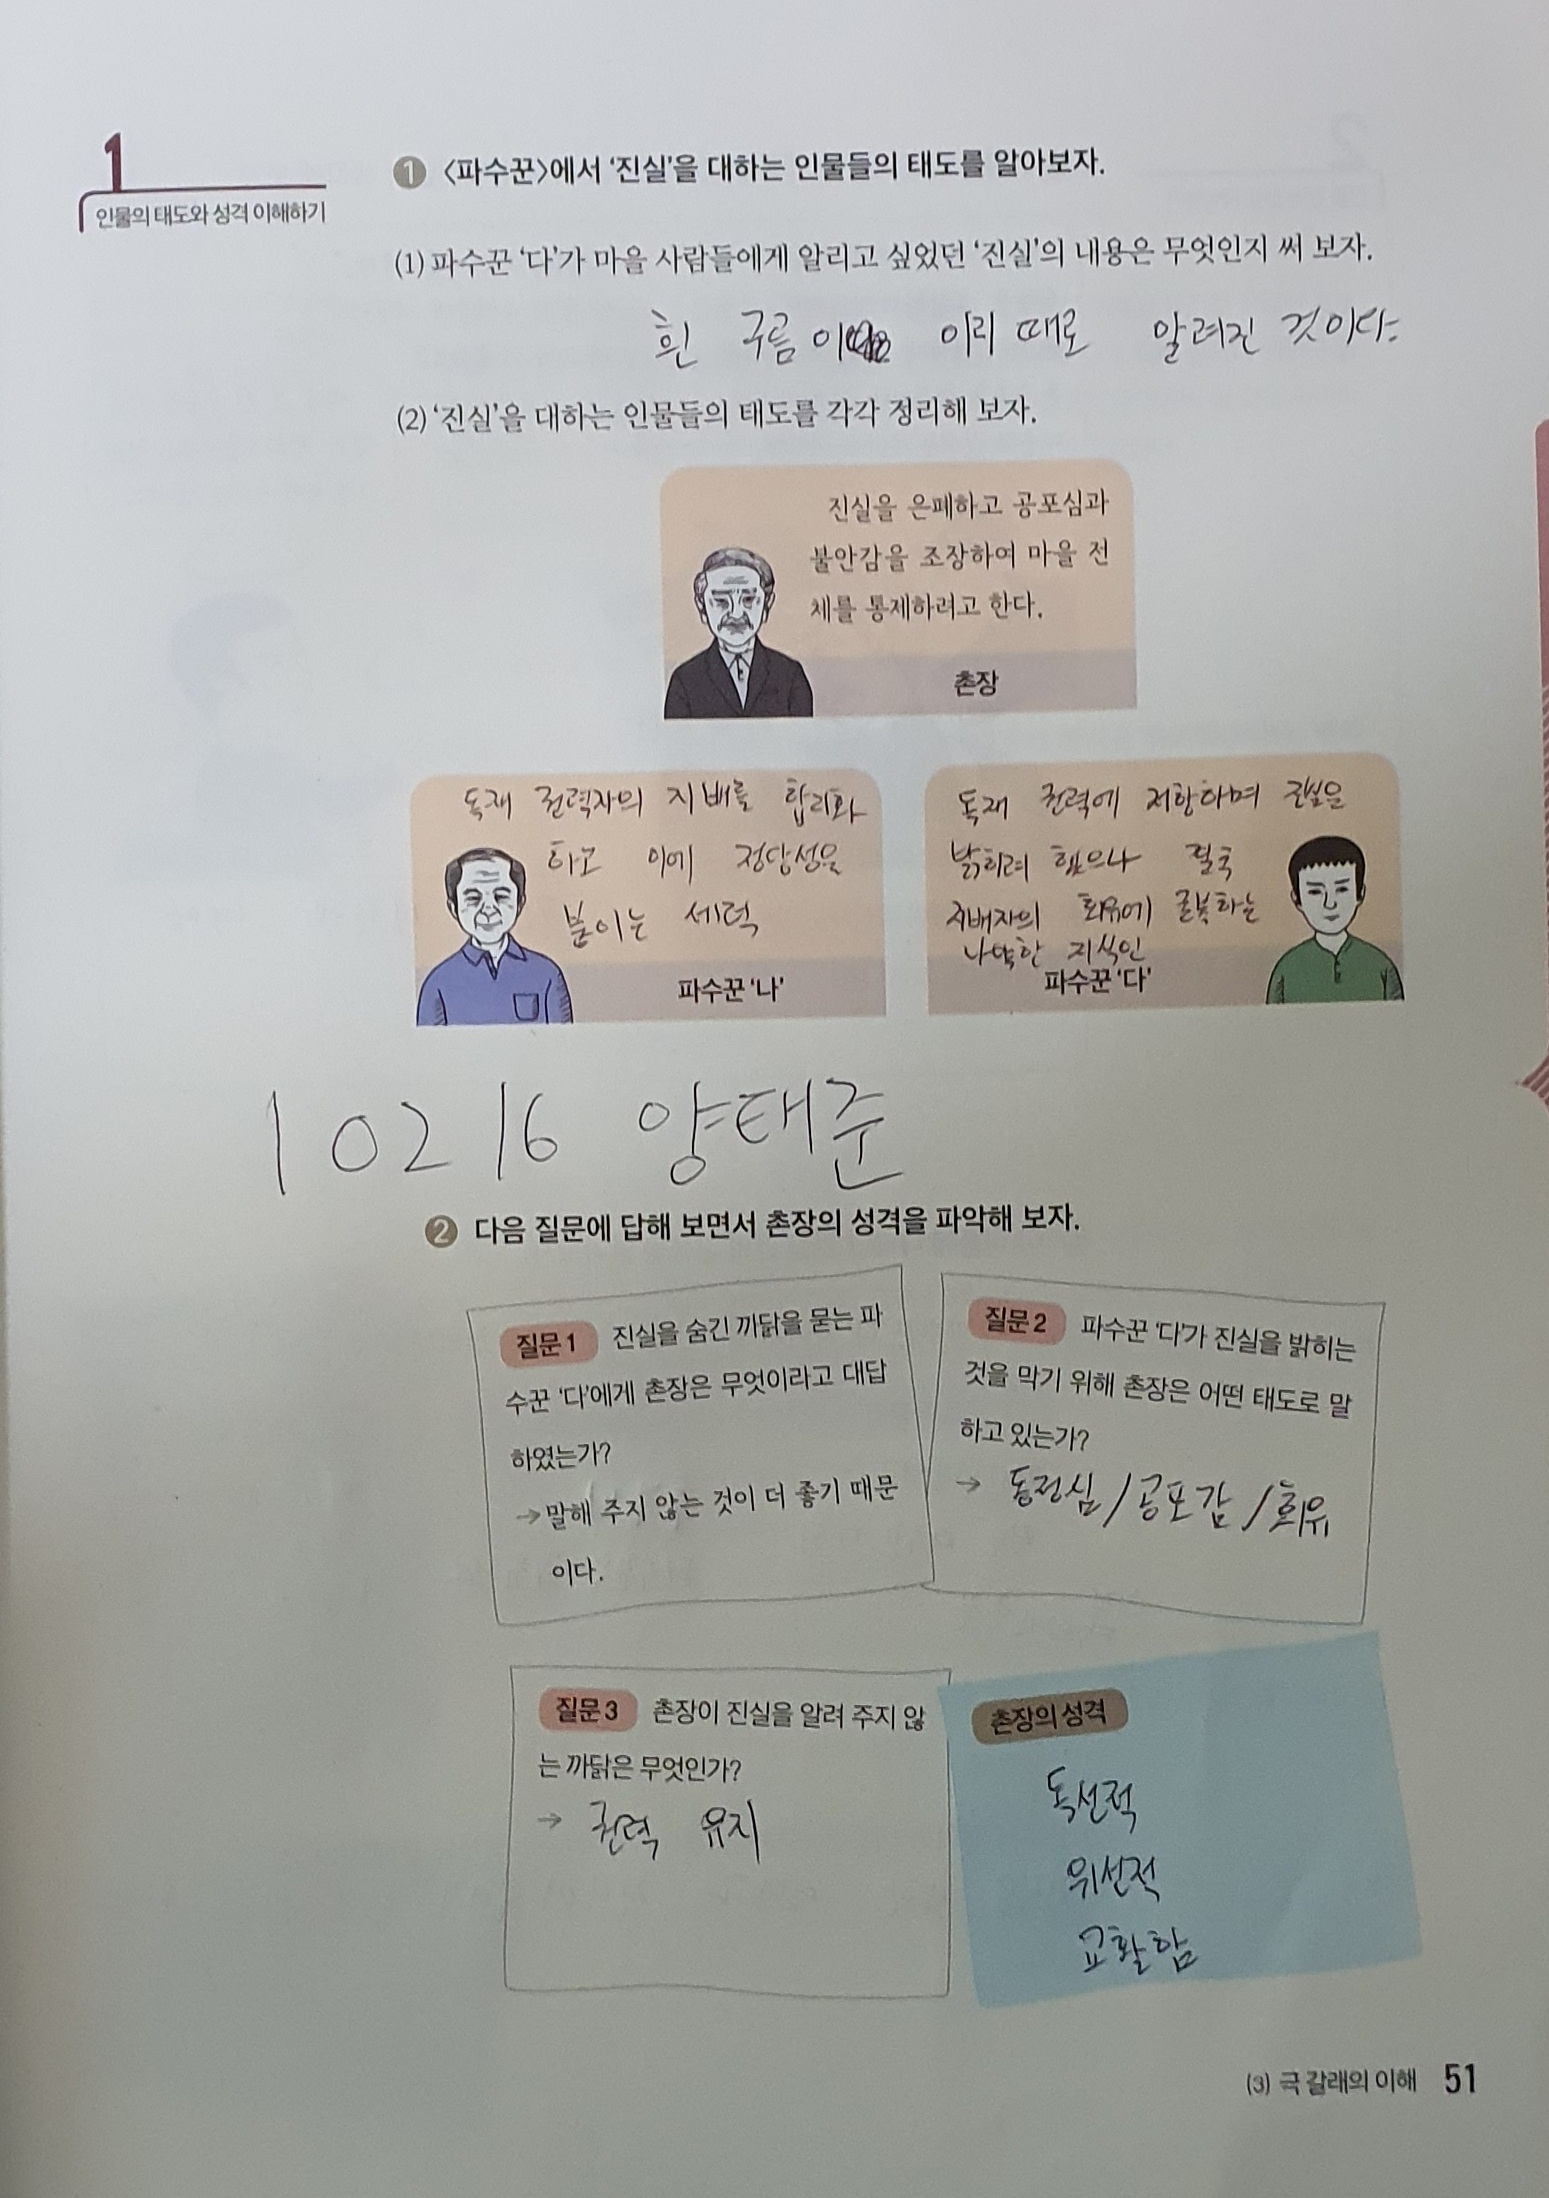 1
인물의 태도와 성격 이해하기
1 <파수꾼>에서 '진실'을 대하는 인물들의 태도를 알아보자.
(1) 파수꾼 '다'가 마을 사람들에게 알리고 싶었던 '진실'의 내용은 무엇인지 써 보자.
흰 구름이 이리 떼로 알려진 것이다.
(2) '진실'을 대하는 인물들의 태도를 각각 정리해 보자.
진실을 은폐하고 공포심과
불안감을 조장하여 마을 전
체를 통제하려고 한다.
촌장
독재 권력자의 지배를 합리화
하고 이에 정당성을
붙이는 세력
파수꾼 '나'
독재 권력에 저항하며 진실을
밝히려 했으나 결국
지배자의 회유에 굴복하는
나약한 지식인
파수꾼 '다'
10216 양태준
2 다음 질문에 답해 보면서 촌장의 성격을 파악해 보자.
질문 1 진실을 숨긴 까닭을 묻는 파
수꾼 '다'에게 촌장은 무엇이라고 대답
하였는가?
→ 말해 주지 않는 것이 더 좋기 때문
이다.
질문 2 파수꾼 '다'가 진실을 밝히는
것을 막기 위해 촌장은 어떤 태도로 말
하고 있는가?
→ 동정심/공포감/회유
질문 3 촌장이 진실을 알려 주지 않
는 까닭은 무엇인가?
→ 권력 유지
촌장의 성격
독선적
위선적
교활함
(3) 극 갈래의 이해 51